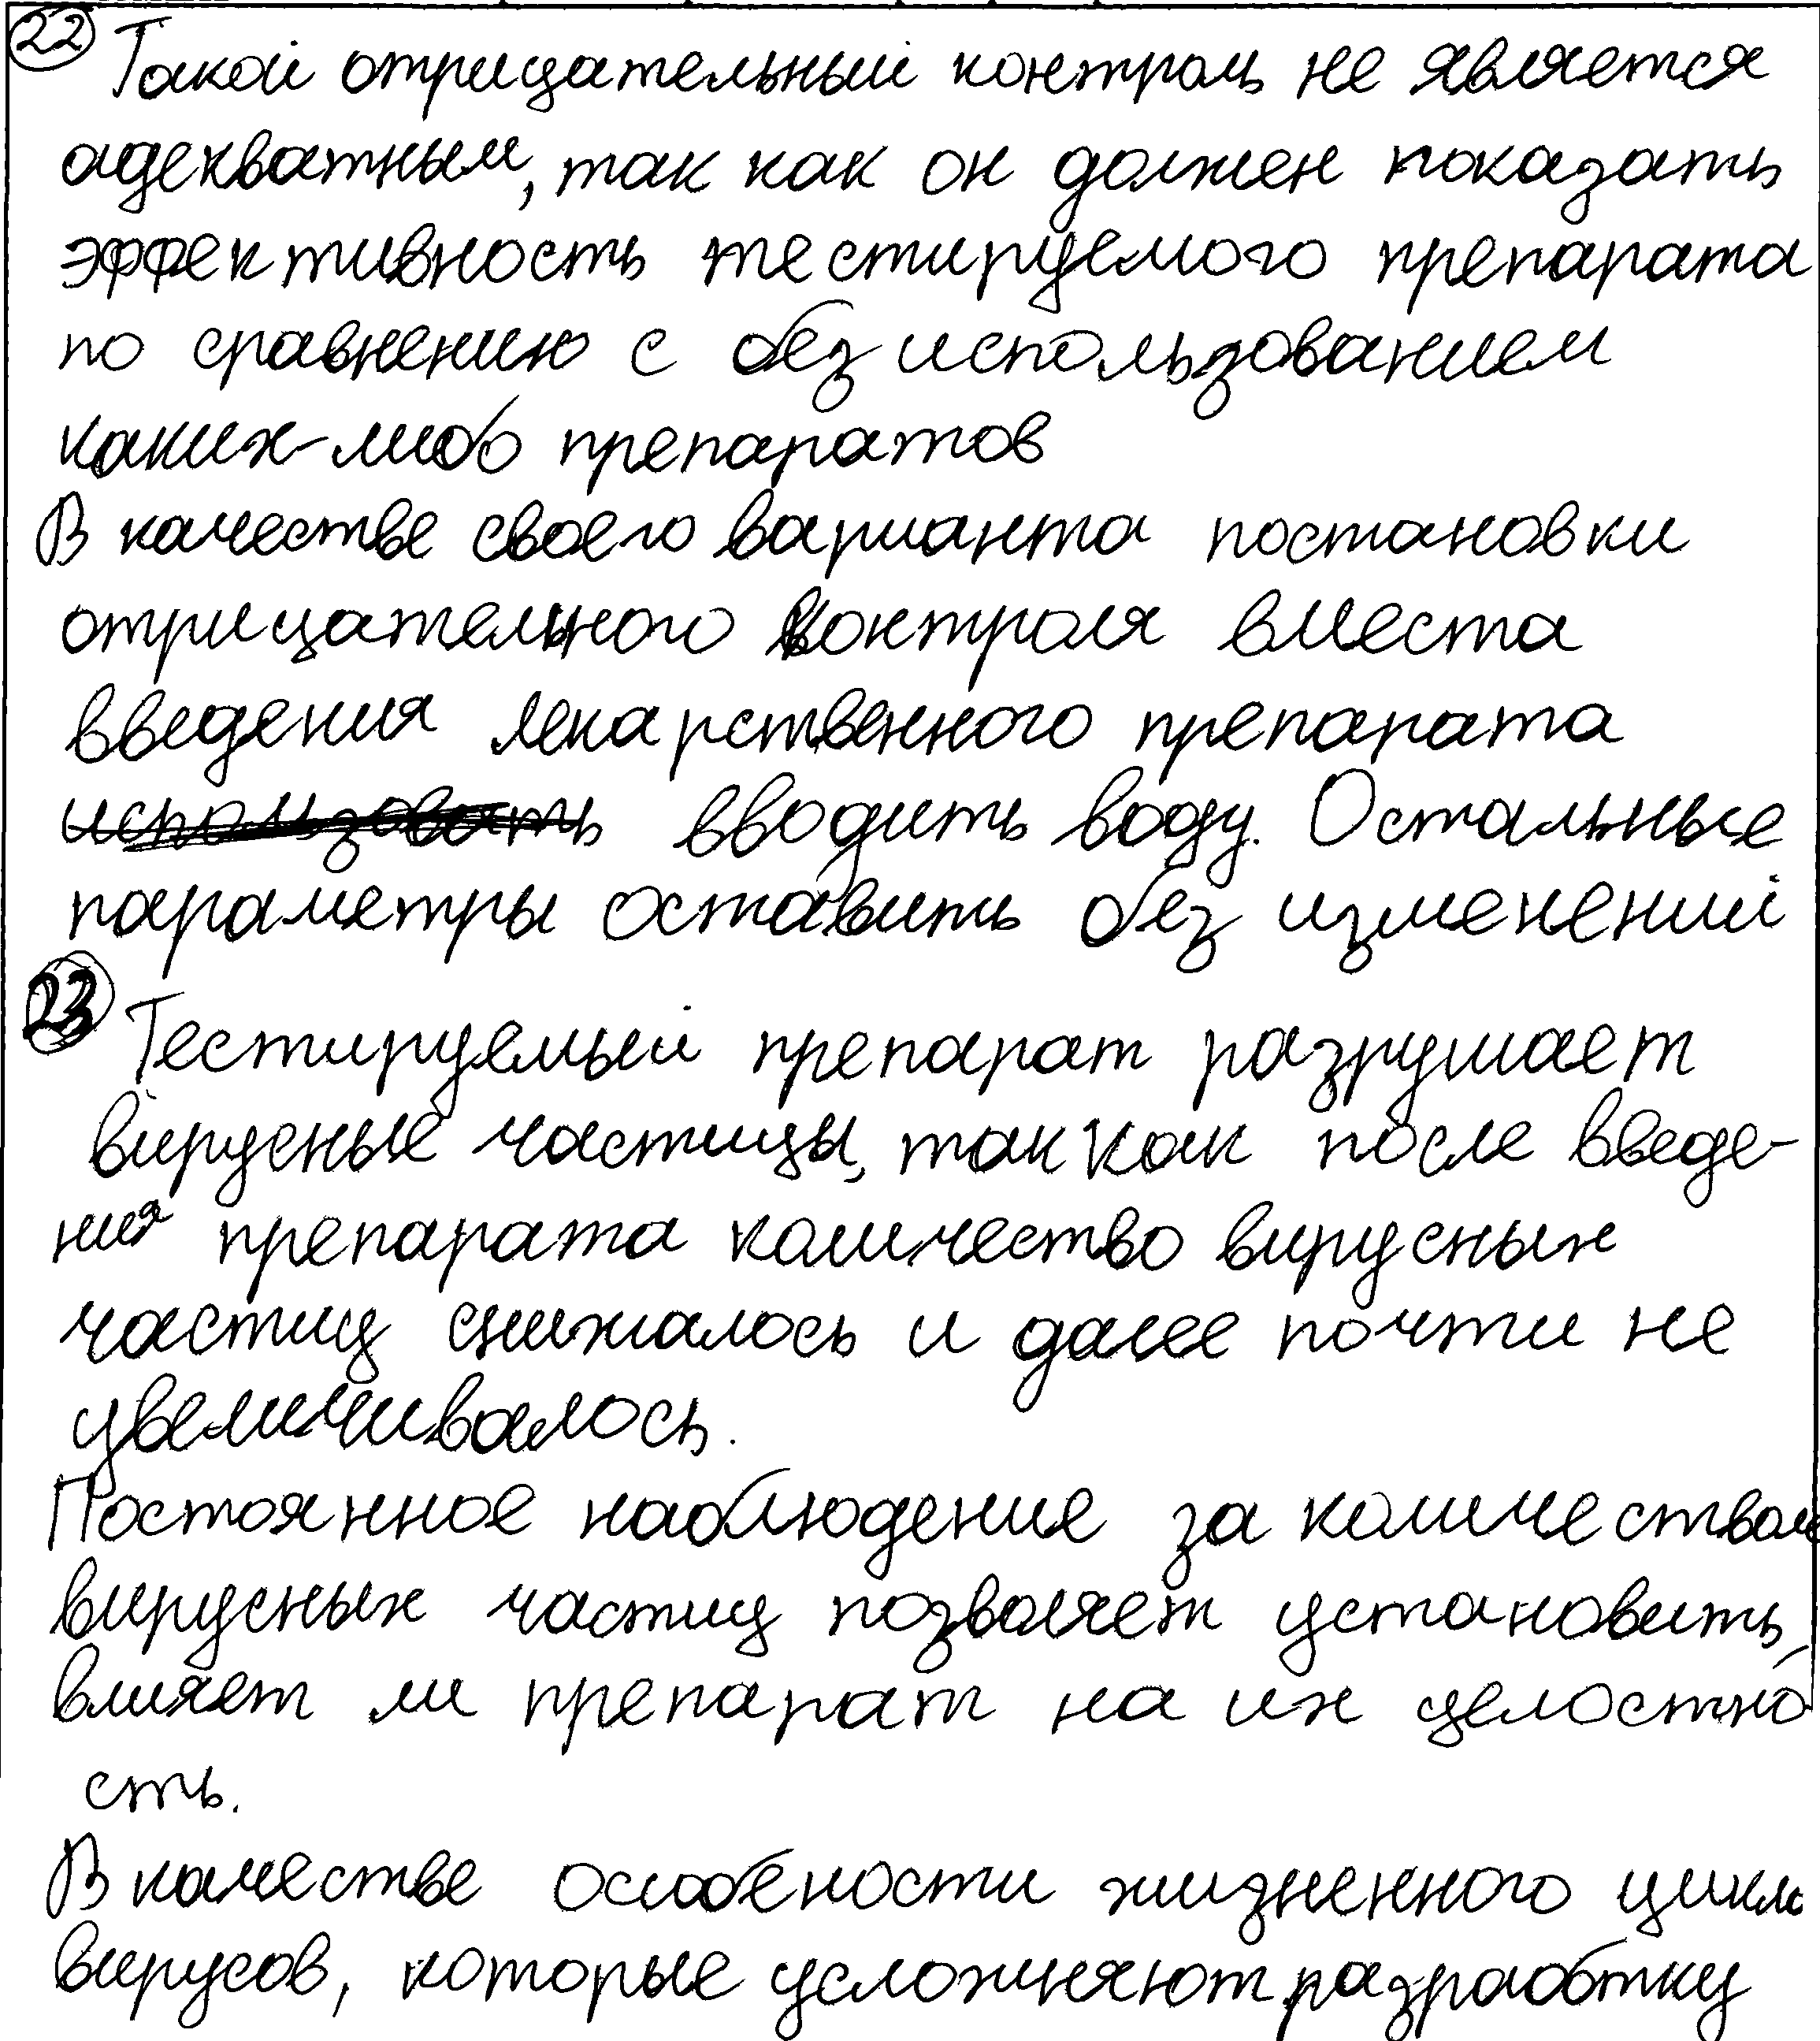 22 Такой отрицательный контроль не является
адекватным, так как он должен показать
эффективность тестируемого препарата
по сравнению с без использованием
каких-либо препаратов
В качестве своего варианта постановки
отрицательного контроля вместа
введения лекарственного препарата
использовать вводить воду. Остальные
параметры оставить без изменений
23 Тестируемый препарат разрушает
вирусные частицы, так как после введе-
ния препарата количество вирусных
частиц снижалось и далее почти не
увеличивалось.
Постоянное наблюдение за количеством
вирусных частиц позволяет установить,
влияет ли препарат на их целостно
сть.
В качестве особености жизненного цикла
вирусов, которые усложняют разработку